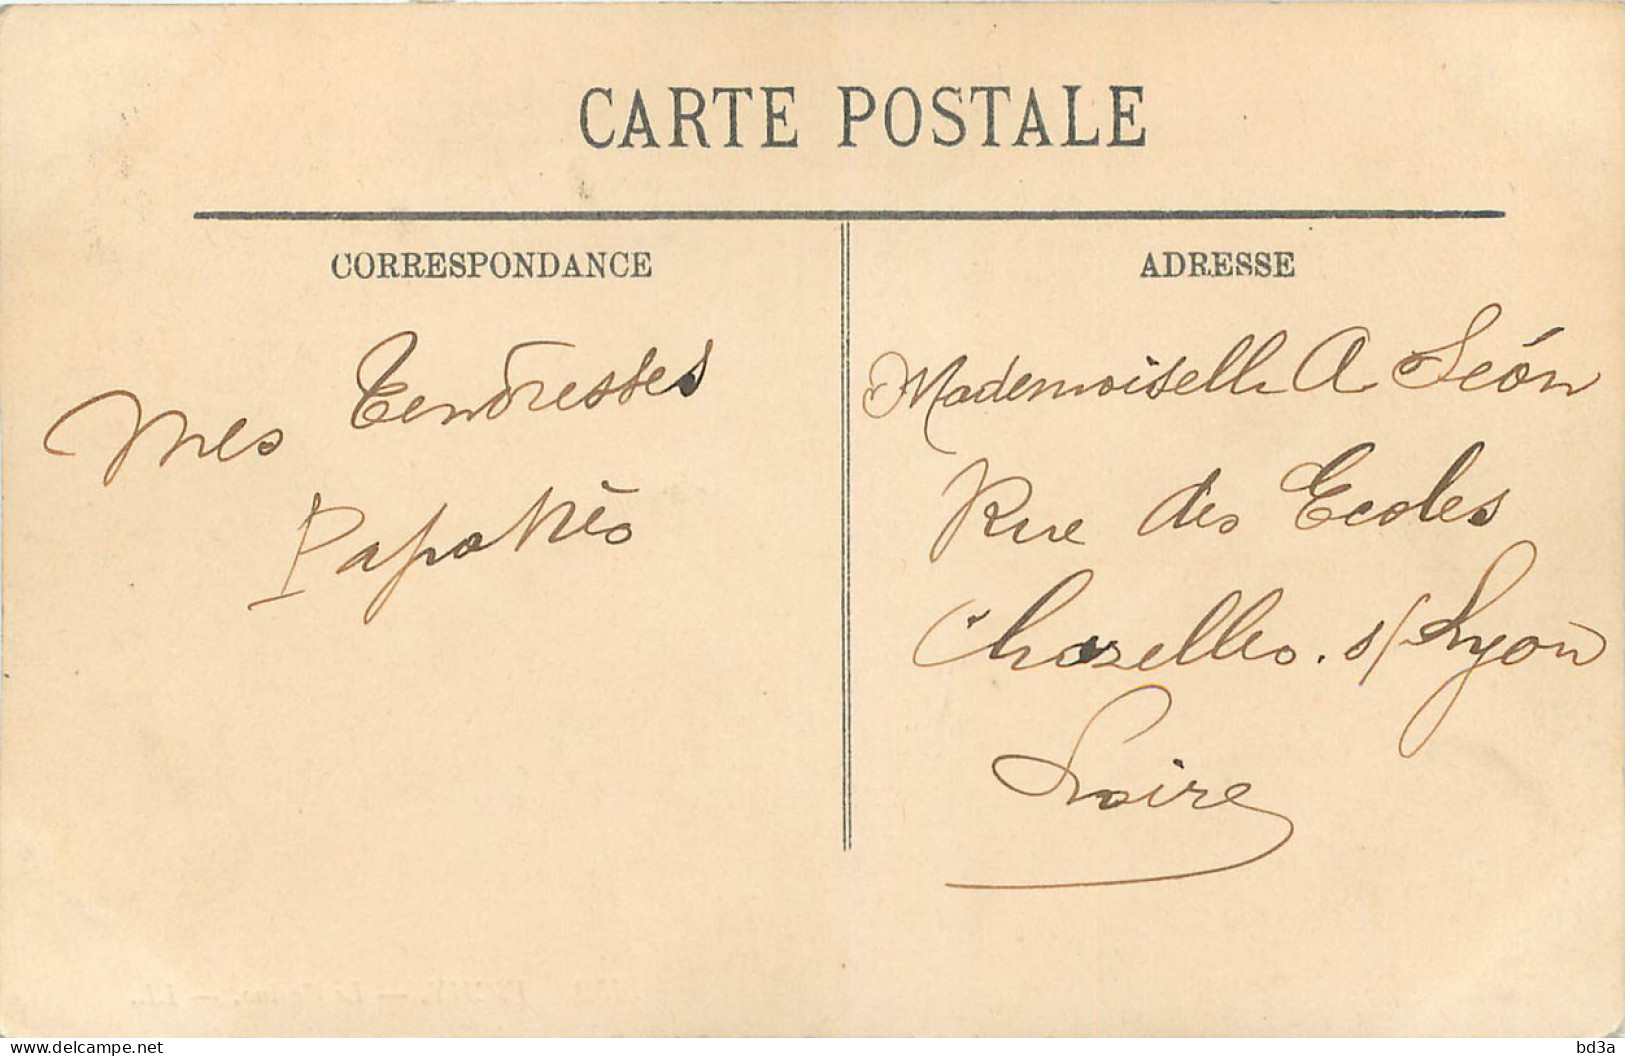 CARTE POSTALE
CORRESPONDANCE
Mes Tendresses
ADRESSE
Mademoiselle A Léon
Rue des Ecoles
Chazelles. s/Lyon
Loire
delcampe.net
bd3a